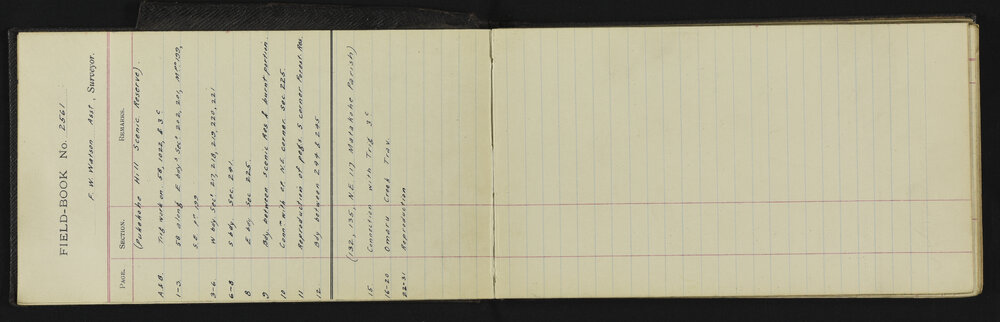 FIELD-BOOK No. 2561
F. W. Watson Asst, Surveyor.
PAGE. SECTION. REMARKS.
(Pukekohe Hill Scenic Reserve).
A & B. Trig work on 58, 1022, & 3c
1-3. 58 along E bdys Secs 202, 201, 199,
S.E. Pt 199
3-6. W bdy Secs 217, 218, 219, 220, 221
6-8 S bdy. Sec. 241.
8 E bdy Sec 225.
9 Bdy. between Scenic Res & burnt portion.
10 Connn with op. N.E. corner Sec. 225.
11 Reproduction of pegs. S corner Forest Res.
12. Bdy between 244 & 245
(132, 135, N.E. 117 Matakohe Parish)
15. Connection with Trig 3c
16-20 Omaru Creek Trav.
22-31 Reproduction